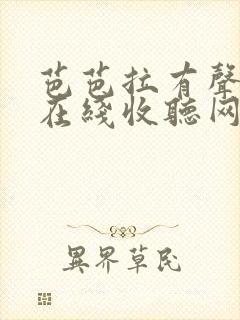 芭芭拉有聲
在綫收聽网
異界草民